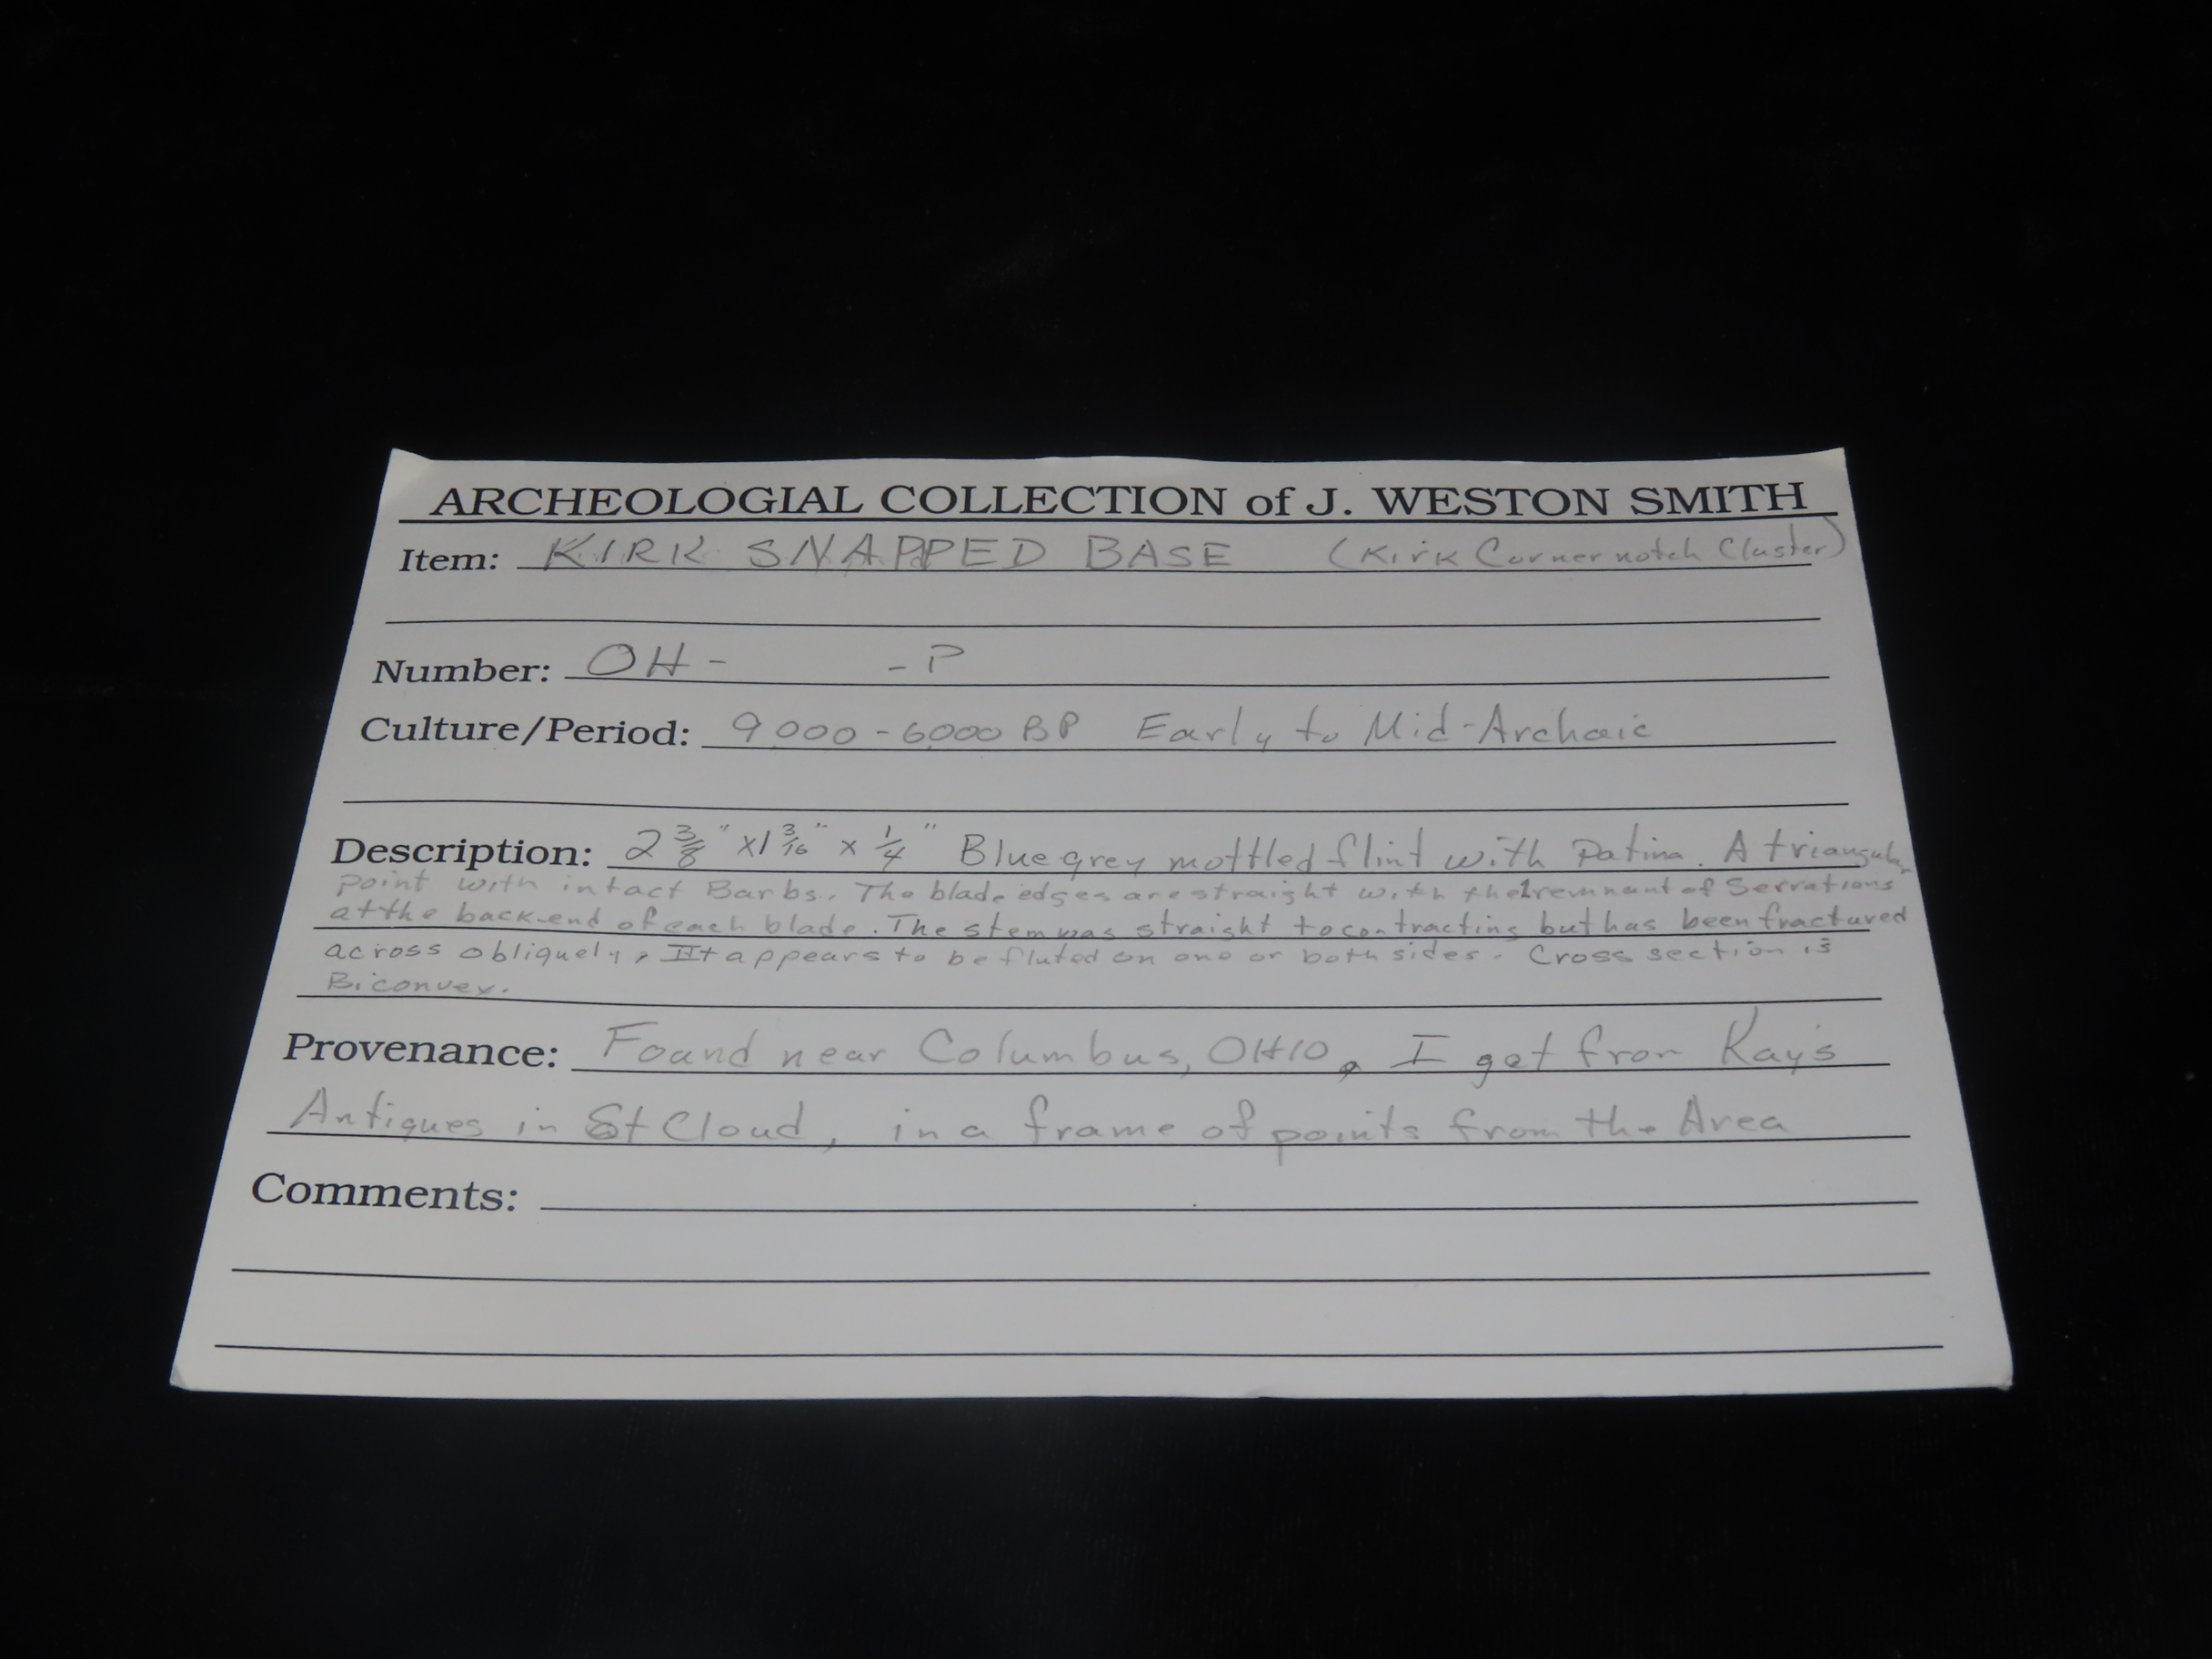 ARCHEOLOGIAL COLLECTION of J. WESTON SMITH
Item: KIRK SNAPPED BASE (Kirk Corner notch Cluster)
Number: OH- -P
Culture/Period: 9,000-6000 BP Early to Mid-Archaic
Description: 2 3/8" x 1 3/16" x 1/4" Blue grey mottled flint with Patina. A triangular
point with intact Barbs. The blade edges are straight with the remnant of Serrations
at the back-end of each blade. The stem was straight to contracting but has been fractured
across obliquely, It appears to be fluted on one or both sides. Cross section is
Biconvex.
Provenance: Found near Columbus, OHIO, I got from Kay's
Antiques in St Cloud, in a frame of points from the Area
Comments: